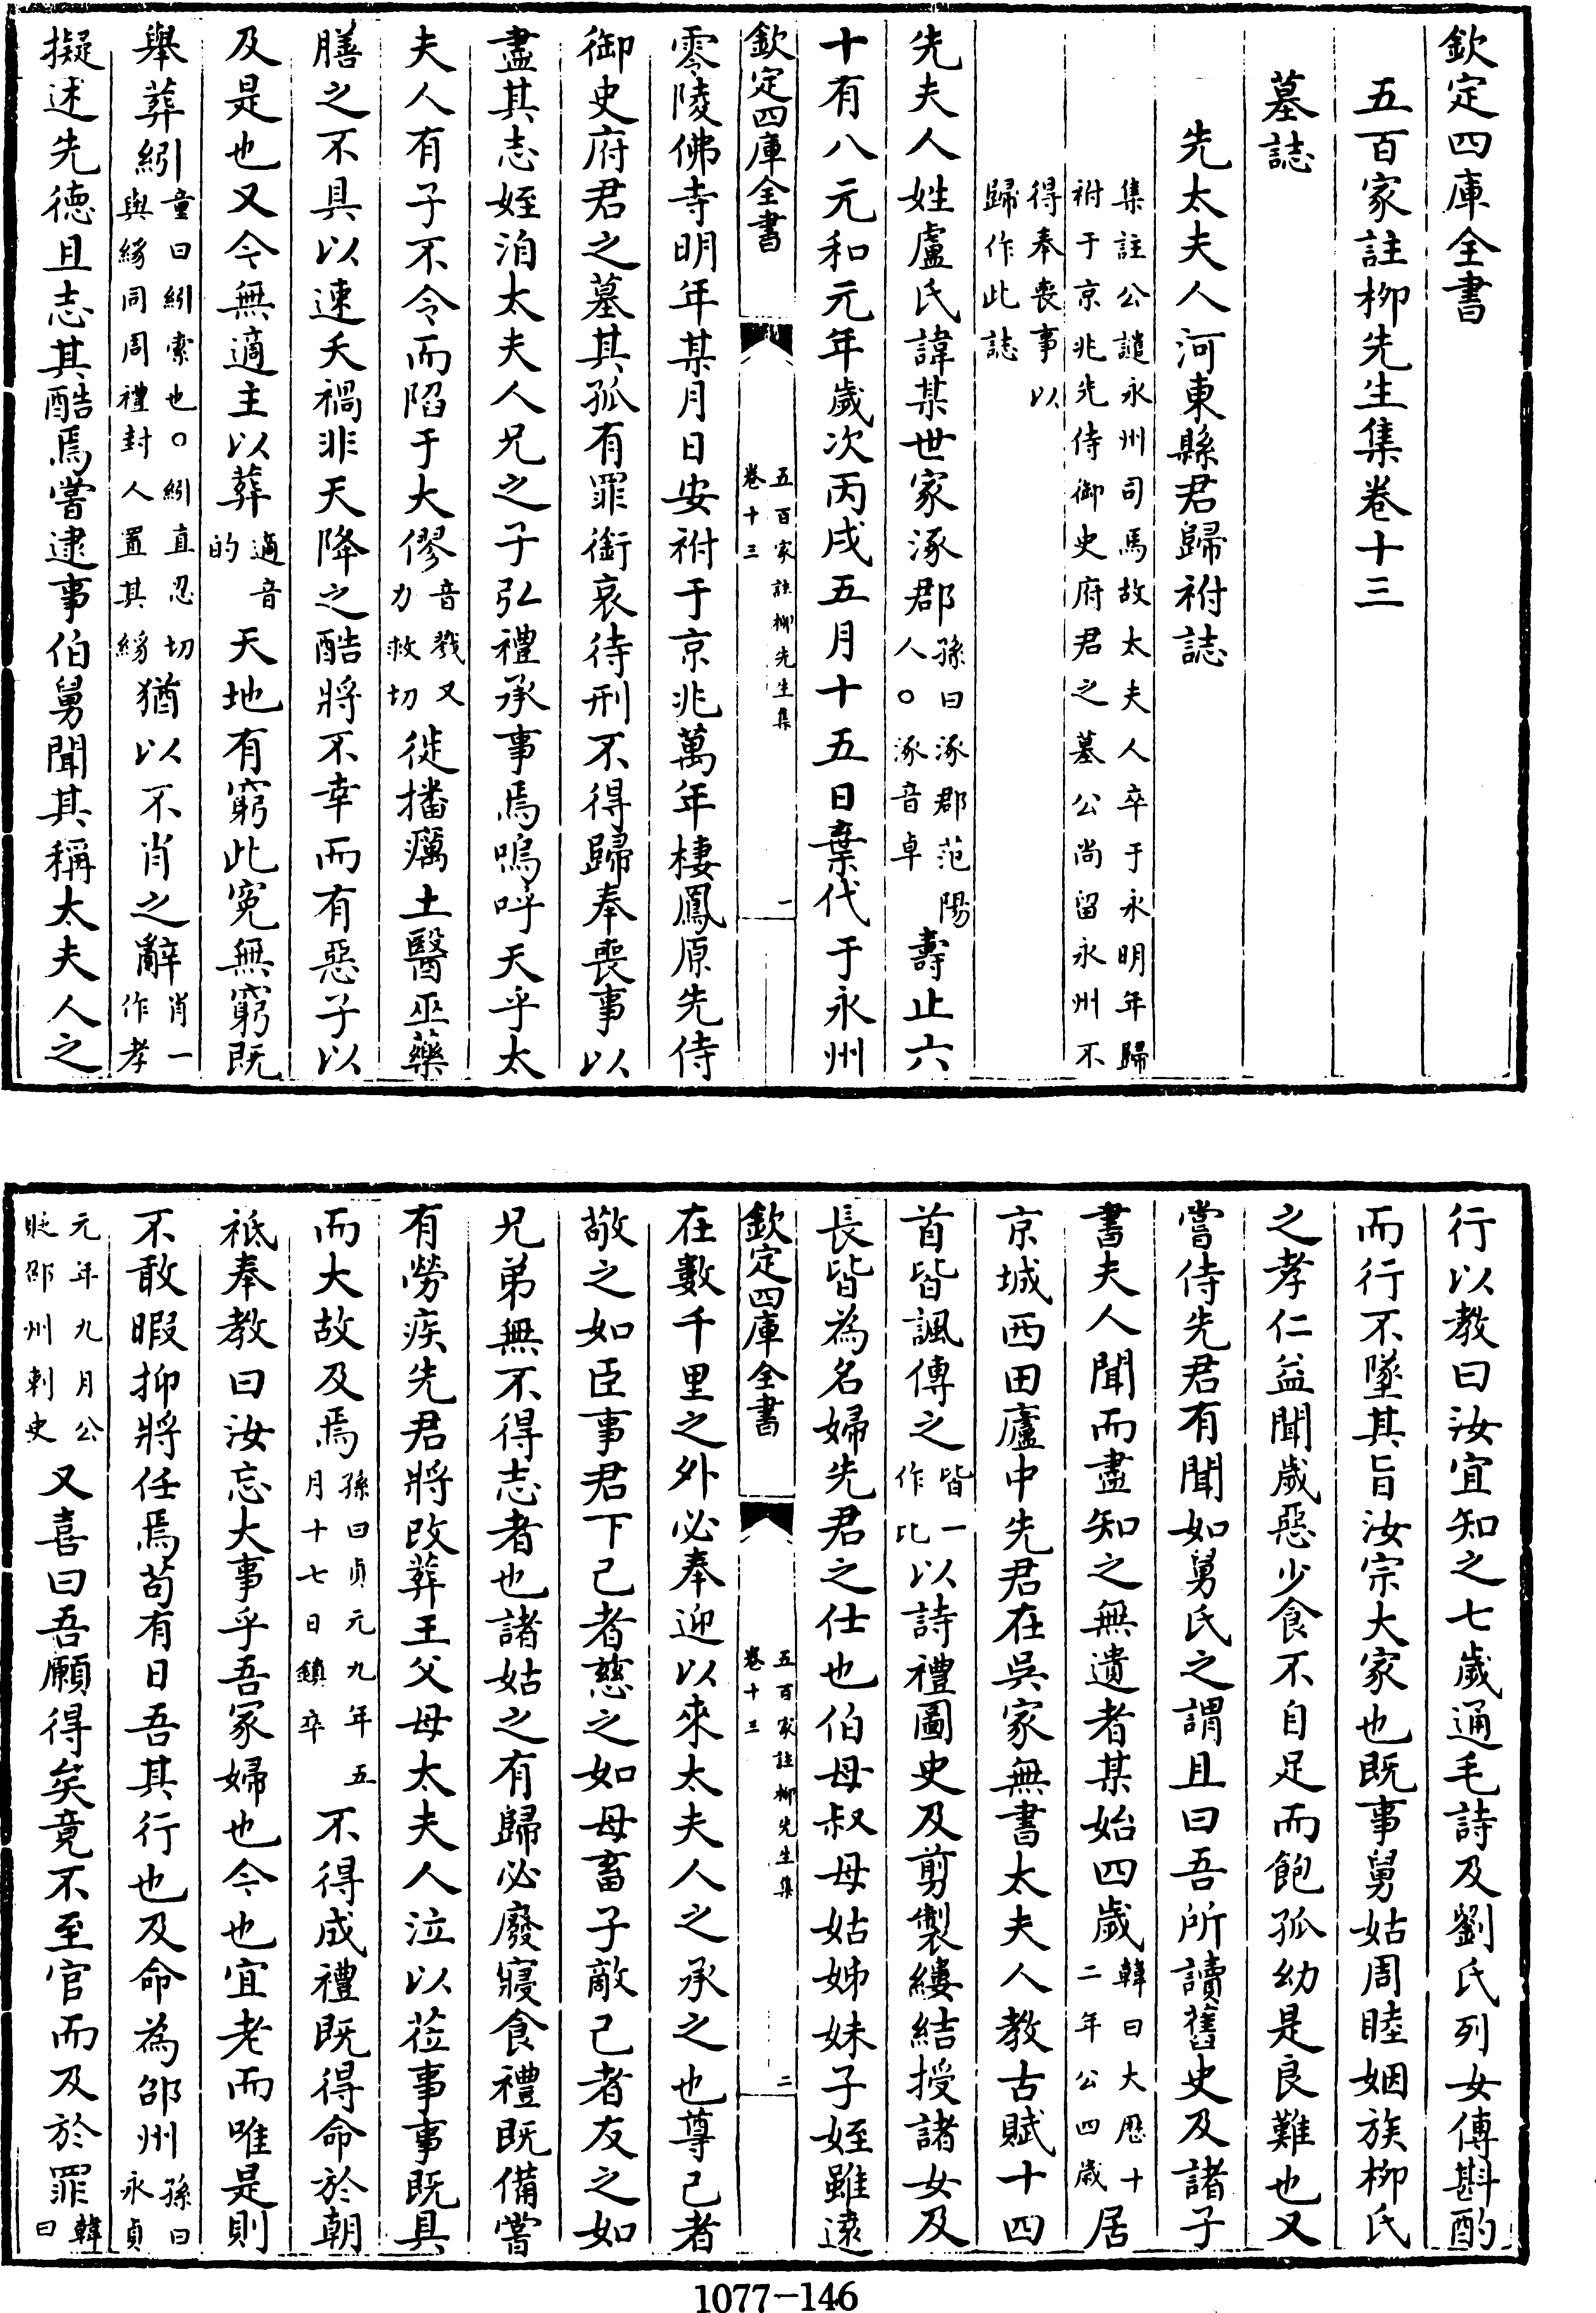 欽定四庫全書
五百家註柳先生集卷十三
墓誌
先太夫人河東縣君歸祔誌
集註公謫永州司馬故太夫人卒于永明年歸
祔于京兆先侍御史府君之墓公尚留永州不
得奉喪事以
歸作此誌
先夫人姓盧氏諱某世家涿郡孫曰涿郡范陽人○涿音卓壽止六
十有八元和元年歲次丙戌五月十五日棄代于永州
欽定四庫全書
五百家註柳先生集
卷十三
一
零陵佛寺明年某月日安祔于京兆萬年棲鳳原先侍
御史府君之墓其孤有罪銜哀待刑不得歸奉喪事以
盡其志姪洎太夫人兄之子弘禮承事焉嗚呼天乎太
夫人有子不令而陷于大僇音戮又力救切徙播癘土醫巫藥
膳之不具以速夭禍非天降之酷將不幸而有惡子以
及是也又今無適主以葬適音的天地有窮此寃無窮既
舉葬紖童曰紖索也○紖直忍切與緣同周禮封人置其緣猶以不肖之辭肖一作孝
擬述先德且志其酷焉嘗逮事伯舅聞其稱太夫人之
行以教曰汝宜知之七歲通毛詩及劉氏列女傳斟酌
而行不墜其旨汝宗大家也既事舅姑周睦姻族柳氏
之孝仁益聞歲惡少食不自足而飽孤幼是良難也又
嘗侍先君有聞如舅氏之謂且曰吾所讀舊史及諸子
書夫人聞而盡知之無遺者某始四歲韓曰大厯十二年公四歲居
京城西田廬中先君在吳家無書太夫人教古賦十四
首皆諷傳之皆一作比以詩禮圖史及剪製縷結授諸女及
長皆為名婦先君之仕也伯母叔母姑姊妹子姪雖遠
欽定四庫全書
五百家註柳先生集
卷十三
二
在數千里之外必奉迎以來太夫人之承之也尊己者
敬之如臣事君下己者慈之如母畜子敵己者友之如
兄弟無不得志者也諸姑之有歸必廢寢食禮既備嘗
有勞疾先君將改葬王父母太夫人泣以莅事事既具
而大故及焉孫曰貞元九年五月十七日鎮卒不得成禮既得命於朝
祗奉教曰汝忘大事乎吾冢婦也今也宜老而唯是則
不敢暇抑將任焉苟有日吾其行也及命為邵州孫曰永貞
元年九月公貶邵州刺史又喜曰吾願得矣竟不至官而及於罪韓曰
1077-146